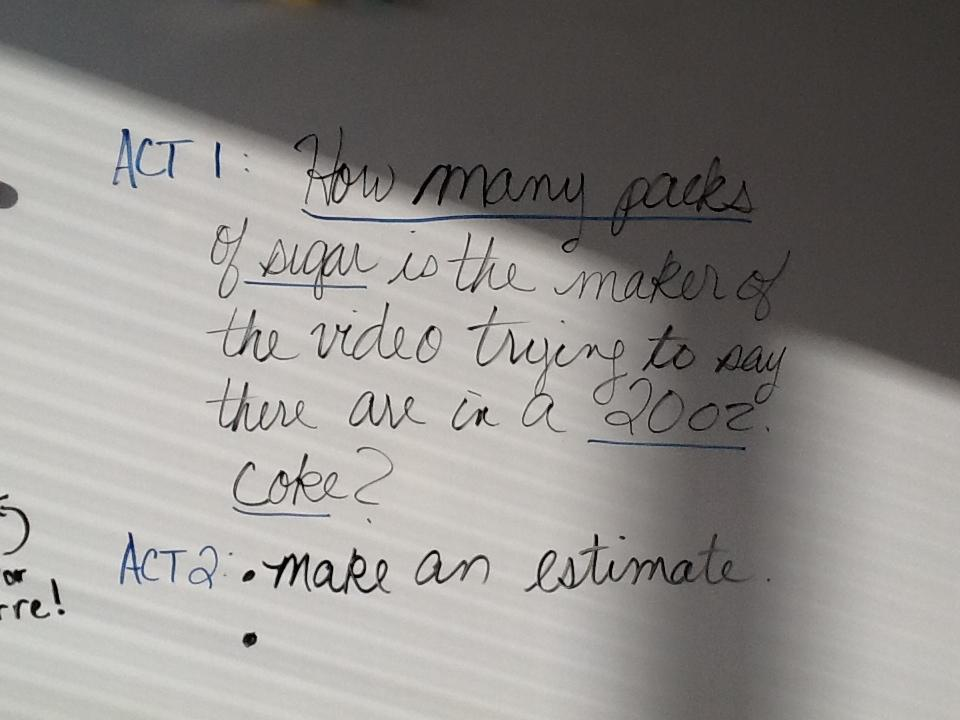 ACT 1: How many packs
of sugar is the maker of
the video trying to say
there are in a 20oz.
Coke?
or
rre!
ACT 2: • make an estimate.
•